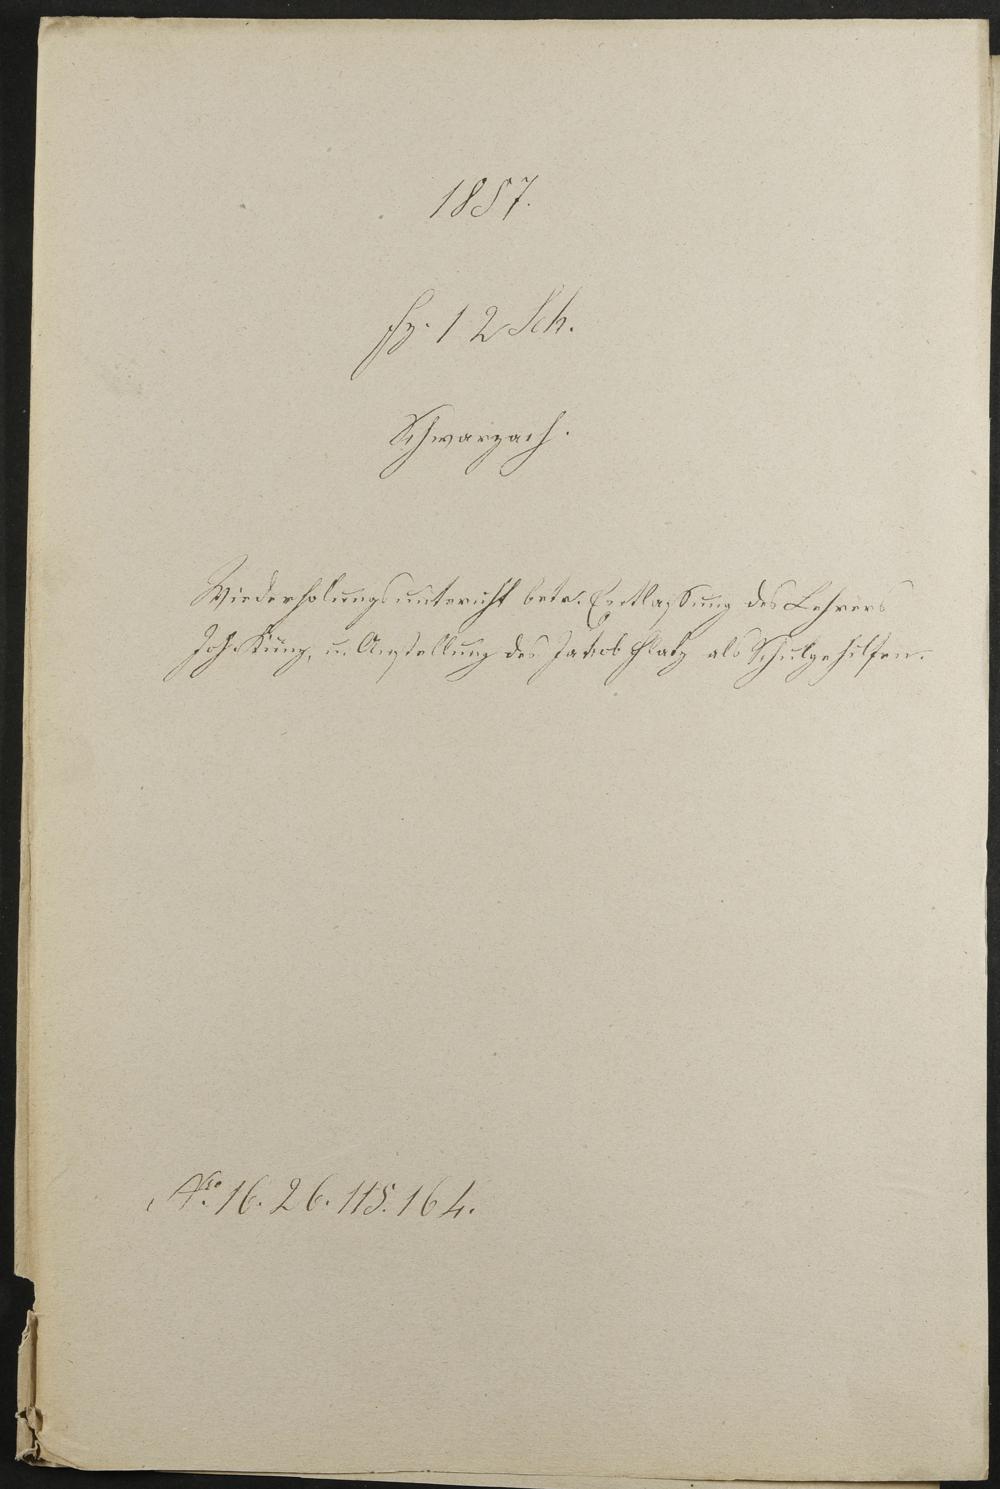 1857.
Fz. 12 Sch.
Schwarzach.
Wiederholungsunterricht betr. Entlassung des Lehrers
Joh. Künz, u. Anstellung des Jakob Platz als Schulgehilfen.
No. 16. 26. 115. 164.